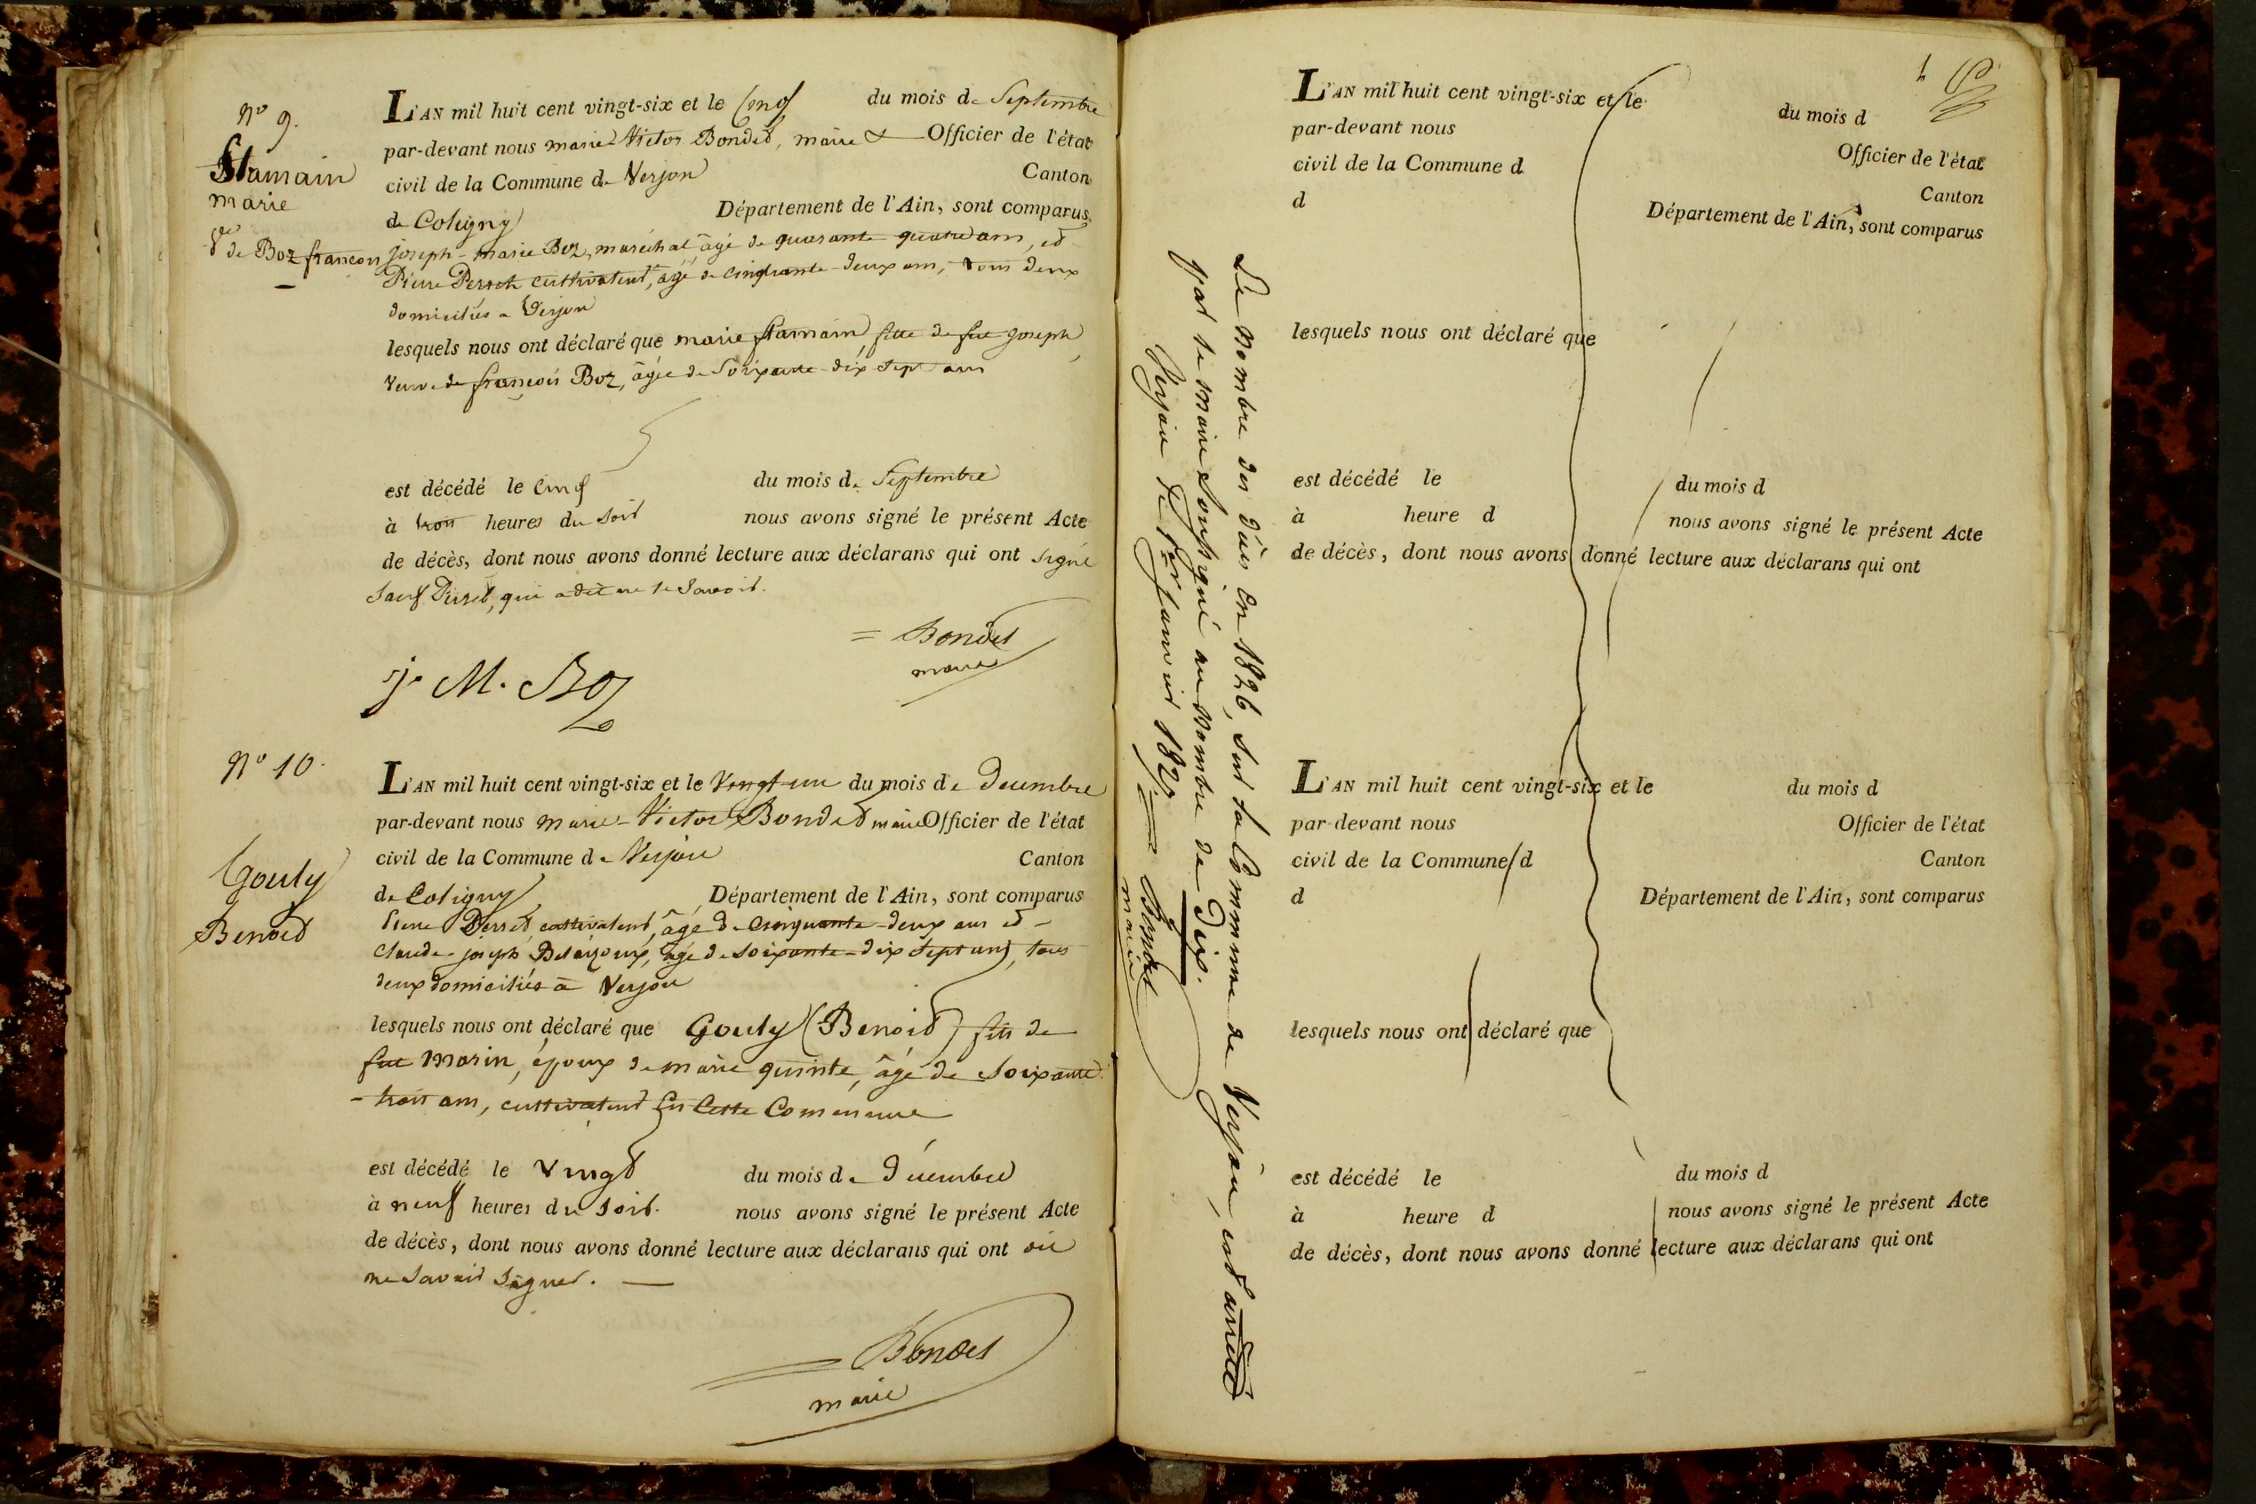 N° 9.
Flamain
marie
Ve de Boz françois
L'AN mil huit cent vingt-six et le Cinq du mois de Septembre
par-devant nous marie Victor Bondet, maire & Officier de l'état
civil de la Commune de Verjon Canton
de Coligny Département de l'Ain, sont comparus
joseph-marie Boz, maréchal âgé de quarante quatre ans, et
Pierre Perret cultivateur, âgé de cinquante-deux ans, tous deux
domiciliés a Verjon
lesquels nous ont déclaré que marie flamain, fille de feu joseph,
veuve de françois Boz, âgée de Soixante-dix sept ans
est décédé le Cinq du mois de Septembre
à trois heures du Soir nous avons signé le présent Acte
de décès, dont nous avons donné lecture aux déclarans qui ont signé
Sauf Perret, qui a dit ne le Savoir.
= Bondet
maire
j. M. Boz
N° 10.
Gouly
Benoit
L'AN mil huit cent vingt-six et le Vingt-un du mois de Decembre
par-devant nous Marie-Victor Bondet maire Officier de l'état
civil de la Commune de Verjon Canton
de Coligny Département de l'Ain, sont comparus
Pierre Perret cultivateur, âgé de Cinquante-deux ans et
Claude joseph âgé de soixante-dix sept ans, tous
deux domiciliés à Verjon
lesquels nous ont déclaré que Gouly (Benoit) fils de
feu Marin, époux de marie quinte, âgé de Soixante
-trois ans, cultivateur En Cette Commune
est décédé le Vingt du mois de Décembre
à neuf heures du Soir. nous avons signé le présent Acte
de décès, dont nous avons donné lecture aux déclarans qui ont dit
ne Savoir Signer.
Bondet
maire
Le Nombre des décès en 1826, sur la Commune de Verjon, est arrêté
par le maire Soussigné au Nombre de Dix.
Verjon le 1er janvier 1827. Bondet
maire
L'AN mil huit cent vingt-six et le du mois d
par-devant nous Officier de l'état
civil de la Commune d Canton
d Département de l'Ain, sont comparus
lesquels nous ont déclaré que
est décédé le du mois d
à heure d nous avons signé le présent Acte
de décès, dont nous avons donné lecture aux déclarans qui ont
L'AN mil huit cent vingt-six et le du mois d
par-devant nous Officier de l'état
civil de la Commune d Canton
d Département de l'Ain, sont comparus
lesquels nous ont déclaré que
est décédé le du mois d
à heure d nous avons signé le présent Acte
de décès, dont nous avons donné lecture aux déclarans qui ont